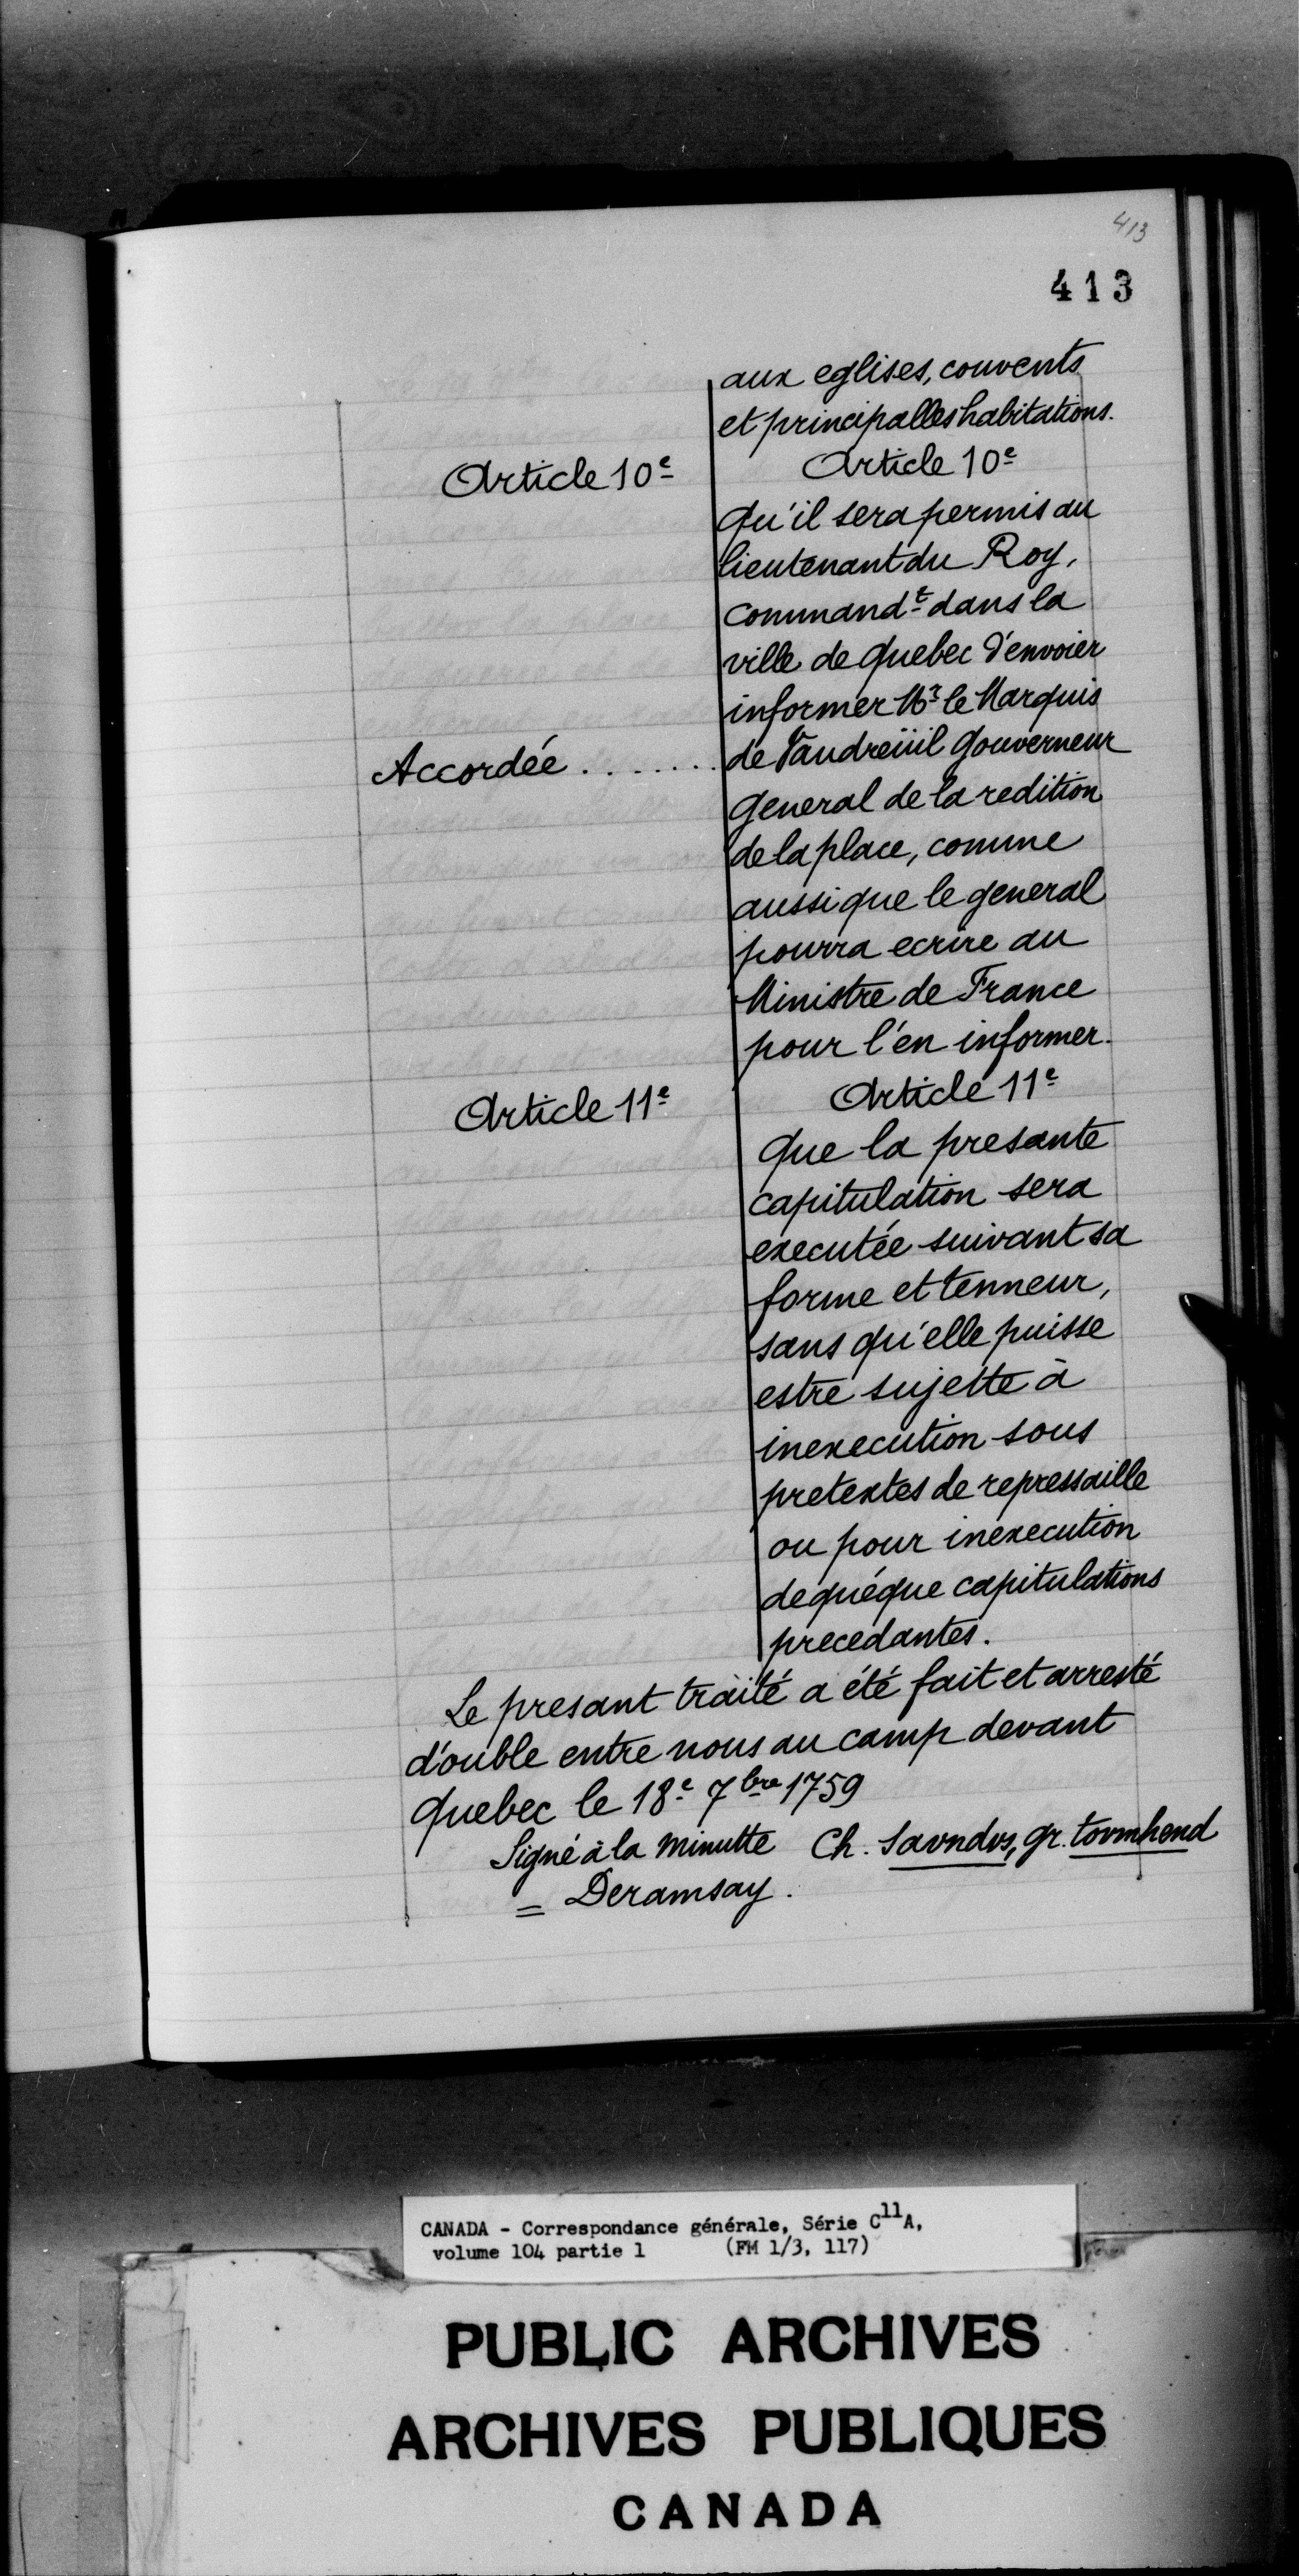 413
413
aux eglises, couvents
et principalles habitations.
Article 10e
Article 10e
qu'il sera permis au
lieutenant du Roy,
command.t dans la
ville de quebec d'envoier
informer Mr le Marquis
Accordée ....... de Vaudreüil gouverneur
general de la redition
de la place, comme
aussi que le general
pourra ecrire au
Ministre de France
pour l'en informer.
Article 11e
Article 11e
que la presante
capitulation sera
executée suivant sa
forme et tenneur,
sans qu'elle puisse
estre sujette à
inexecution sous
pretextes de repressaille
ou pour inexecution
de quéque capitulations
precedantes.
Le presant traité a été fait et arresté
d'ouble entre nous au camp devant
quebec le 18e 7bre 1759
Signé à la minutte Ch. Savndvs, gr. tovnhend
= Deramsay.
CANADA - Correspondance générale, Série C11A,
volume 104 partie 1 (FM 1/3, 117)
PUBLIC ARCHIVES
ARCHIVES PUBLIQUES
CANADA